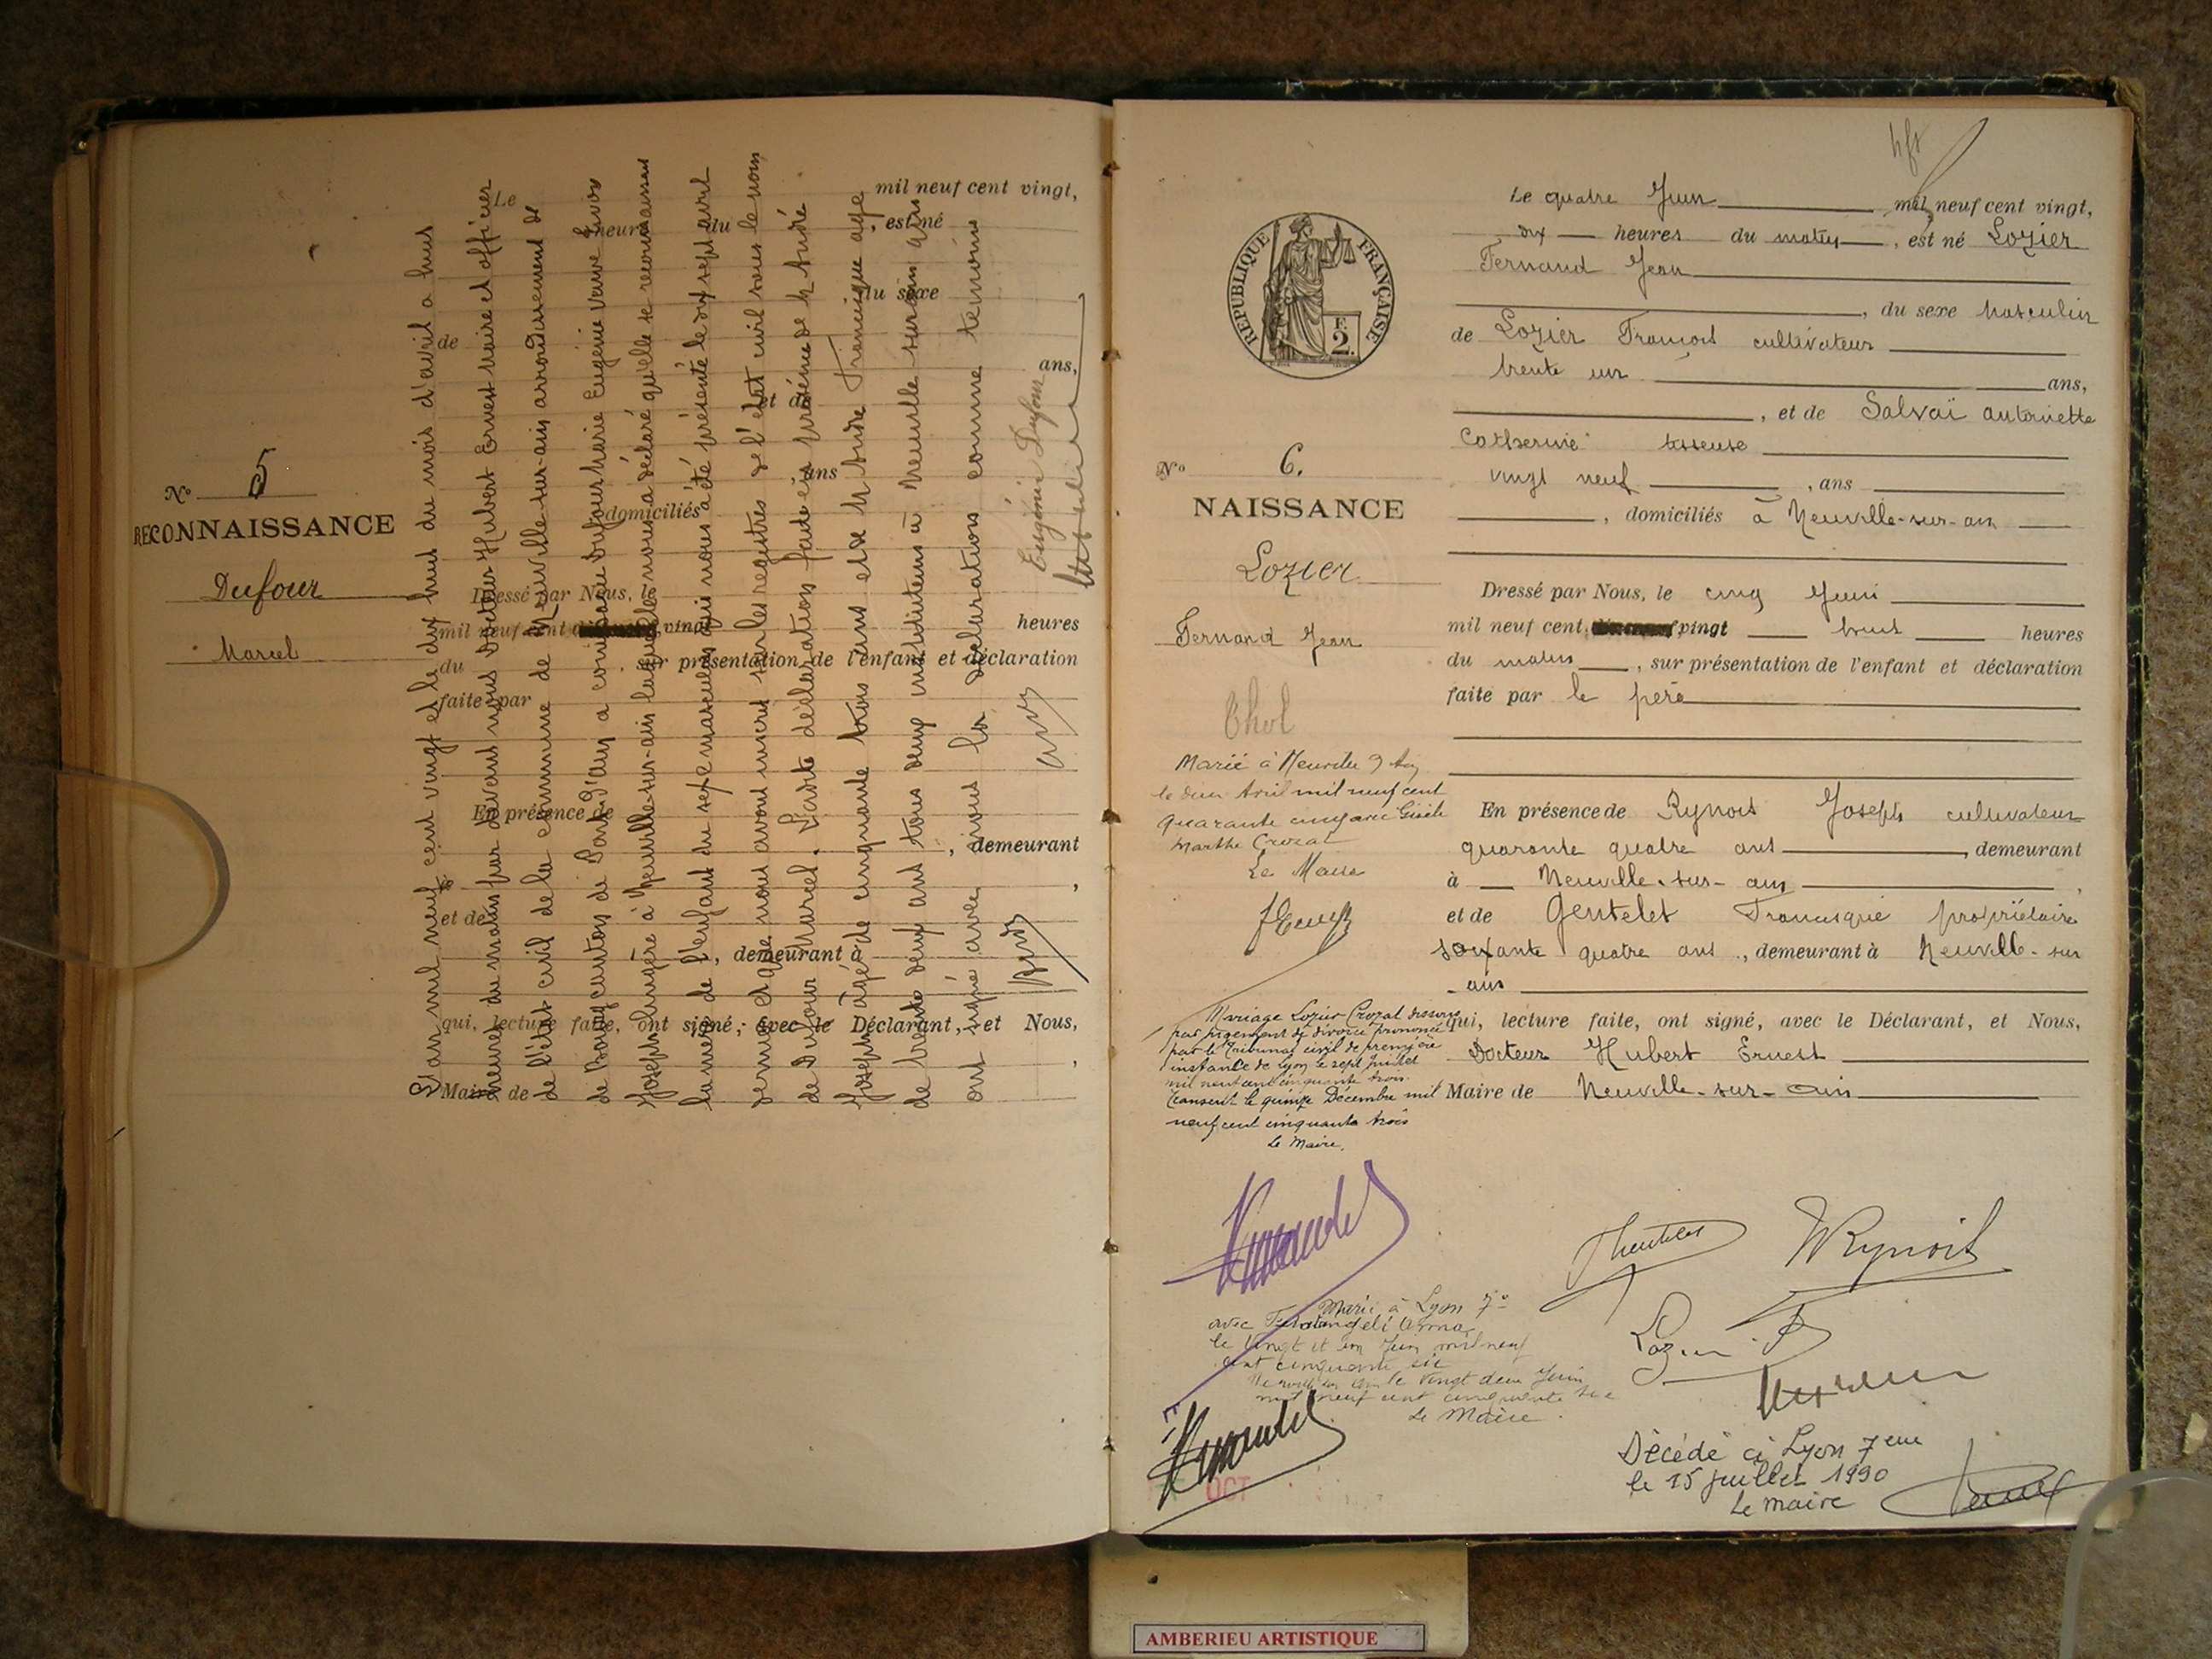 No 5
RECONNAISSANCE
Dufour
Marcel
L'an mil neuf cent vingt et le dix huit du mois d'avril a huit
heures du matin par devant nous Docteur Hubert Ernest maire et officier
de l'état civil de la commune de Neuville-sur-ain arrondissement de
de Bourg canton de Pont d'ain a comparu Dufour Marie Eugénie veuve
Joseph lingère à Neuville-sur-ain laquelle nous a déclaré qu'elle se reconnaissait
la mère de l'enfant du sexe masculin qui nous a été présenté le dix sept avril
dernier et que nous avons inscrit sur les registres de l'état civil sous le nom
de Dufour Marcel. Ladite déclaration faite en présence de
Joseph âgé de cinquante trois ans et de Francisque age
de trente deux ans tous deux instituteurs à Neuville sur ain
ont signé avec nous la déclaration comme temoins
Eugénie Dufour
Le mil neuf cent vingt,
heures du , est né
du sexe
de
ans,
et de
, ans
domiciliés
Dressé par Nous, le
mil neuf cent vingt heures
du , sur présentation de l'enfant et déclaration
faite par
En présence de
, demeurant
à ,
et de
, demeurant à
qui, lecture faite, ont signé, avec le Déclarant, et Nous,
Maire de
RÉPUBLIQUE FRANÇAISE
2
No 6.
NAISSANCE
Lozier
Fernand Jean
Thol
Marié à Neuville s/ Ain
le deux Avril mil neuf cent
quarante cinq avec Gisèle
Marthe Crozat
Le Maire
Mariage Lozier Crozat dissous
par jugement de divorce prononcé
par le Tribunal civil de première
instance de Lyon le sept juillet
mil neuf cent cinquante trois.
Transcrit le quinze Décembre mil
neuf cent cinquante trois
Le Maire.
Marié à Lyon 7e
avec
le vingt et un Juin mil neuf
cent cinquante six
le vingt deux Juin
mil neuf cent cinquante six
Le Maire.
OCT
Le quatre Juin mil neuf cent vingt,
dix heures du matin , est né Lozier
Fernand Jean
, du sexe Masculin
de Lozier François cultivateur
trente un ans,
, et de Salvaï antoinette
Catherine tisseuse
vingt neuf , ans
, domiciliés à Neuville-sur-ain
Dressé par Nous, le cinq Juin
mil neuf cent vingt huit heures
du matin , sur présentation de l'enfant et déclaration
faite par le père
En présence de Rynois Joseph cultivateur
quarante quatre ans , demeurant
à Neuville-sur-ain ,
et de Gentelet Francisque propriétaire
soixante quatre ans , demeurant à Neuville-sur
-ain
qui, lecture faite, ont signé, avec le Déclarant, et Nous,
Docteur Hubert Ernest
Maire de Neuville-sur-ain
Rynois
Lozier F
Décédé à Lyon 7eme
le 15 juillet 1990
Le maire
AMBERIEU ARTISTIQUE